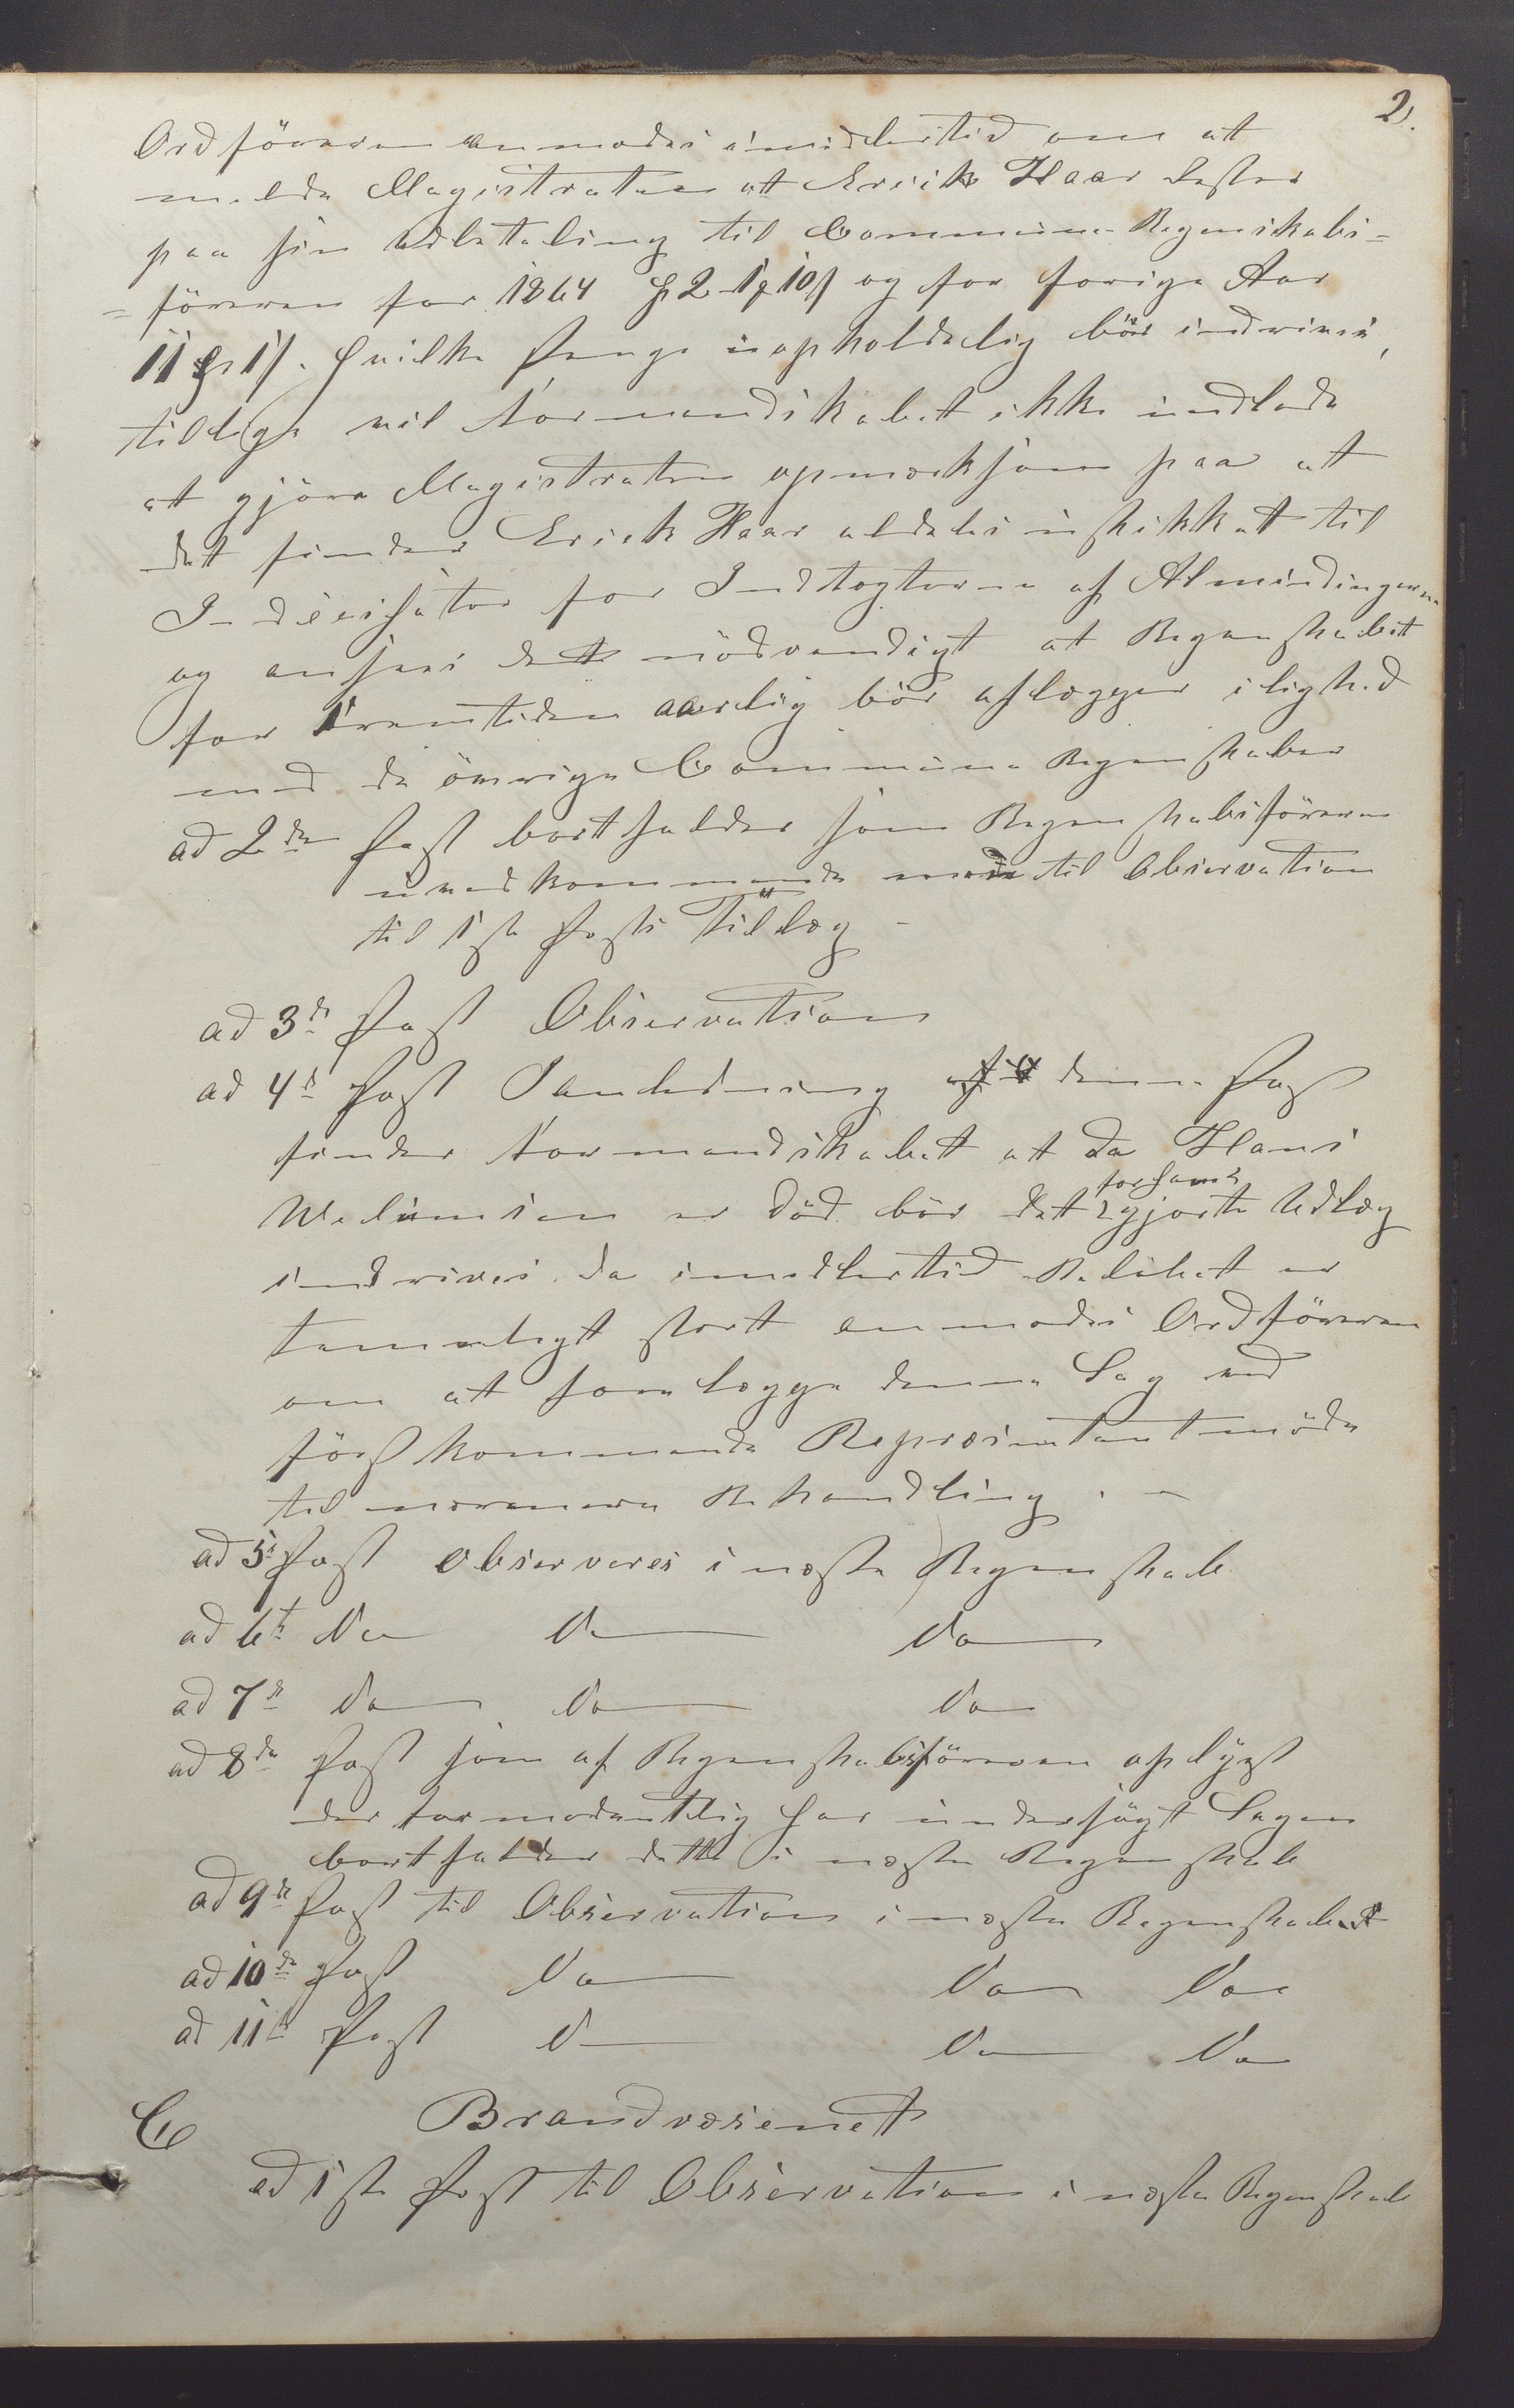 2.
Ordföreren anmodes imidlertid om at
melde Magistraten at Erick Haar rester
paa sin Udbetaling til Commune Regenskabs=
=föreren for 1864 2 1 10 og for forige Aar
11 1 hvilke Penge uopholdelig bör indrives,
tillige vil Formandskabet ikke undlade
at gjöre Magistraten opmærksom paa at
det finder Erick Haar aldeles uskikket til
for Indtægterne af Almindingerne
og ansees det nödvendigt at Regenskabet
for Fremtiden aarlig bör aflægges i lighed
med de övrige Commune Regenskaber
ad 2den Post bortfalder som Regenskabsföreren
uvedkommende men til Observation
til 1ste Posts Tillæg –
ad 3de Post Observation
ad 4de Post I anledning af denne Post
finder Formandskabet at da Hans
er död bör det for ham gjorte Udlæg
indrives, da imidlertid Belöbet er
temmeligt stort anmodes Ordföreren
om at forelægge denne Sag ved
förstkommende Repræsentantmöde
til nærmere Behandling. –
ad 5te Post observeres i næste Regenskab
ad 6te Do Do Do
ad 7de Do Do Do
ad 8de Post som af Regenskabsföreren oplyst
der formodentlig har undersögt Sagen
bortfalder dette i næste Regenskab
ad 9de Post til Observation i næste Regenskab
ad 10de Post Do Do Do
ad 11te Post Do Do Do
C Brandvæsenet
ad 1ste Post til Observation i næste Regenskab